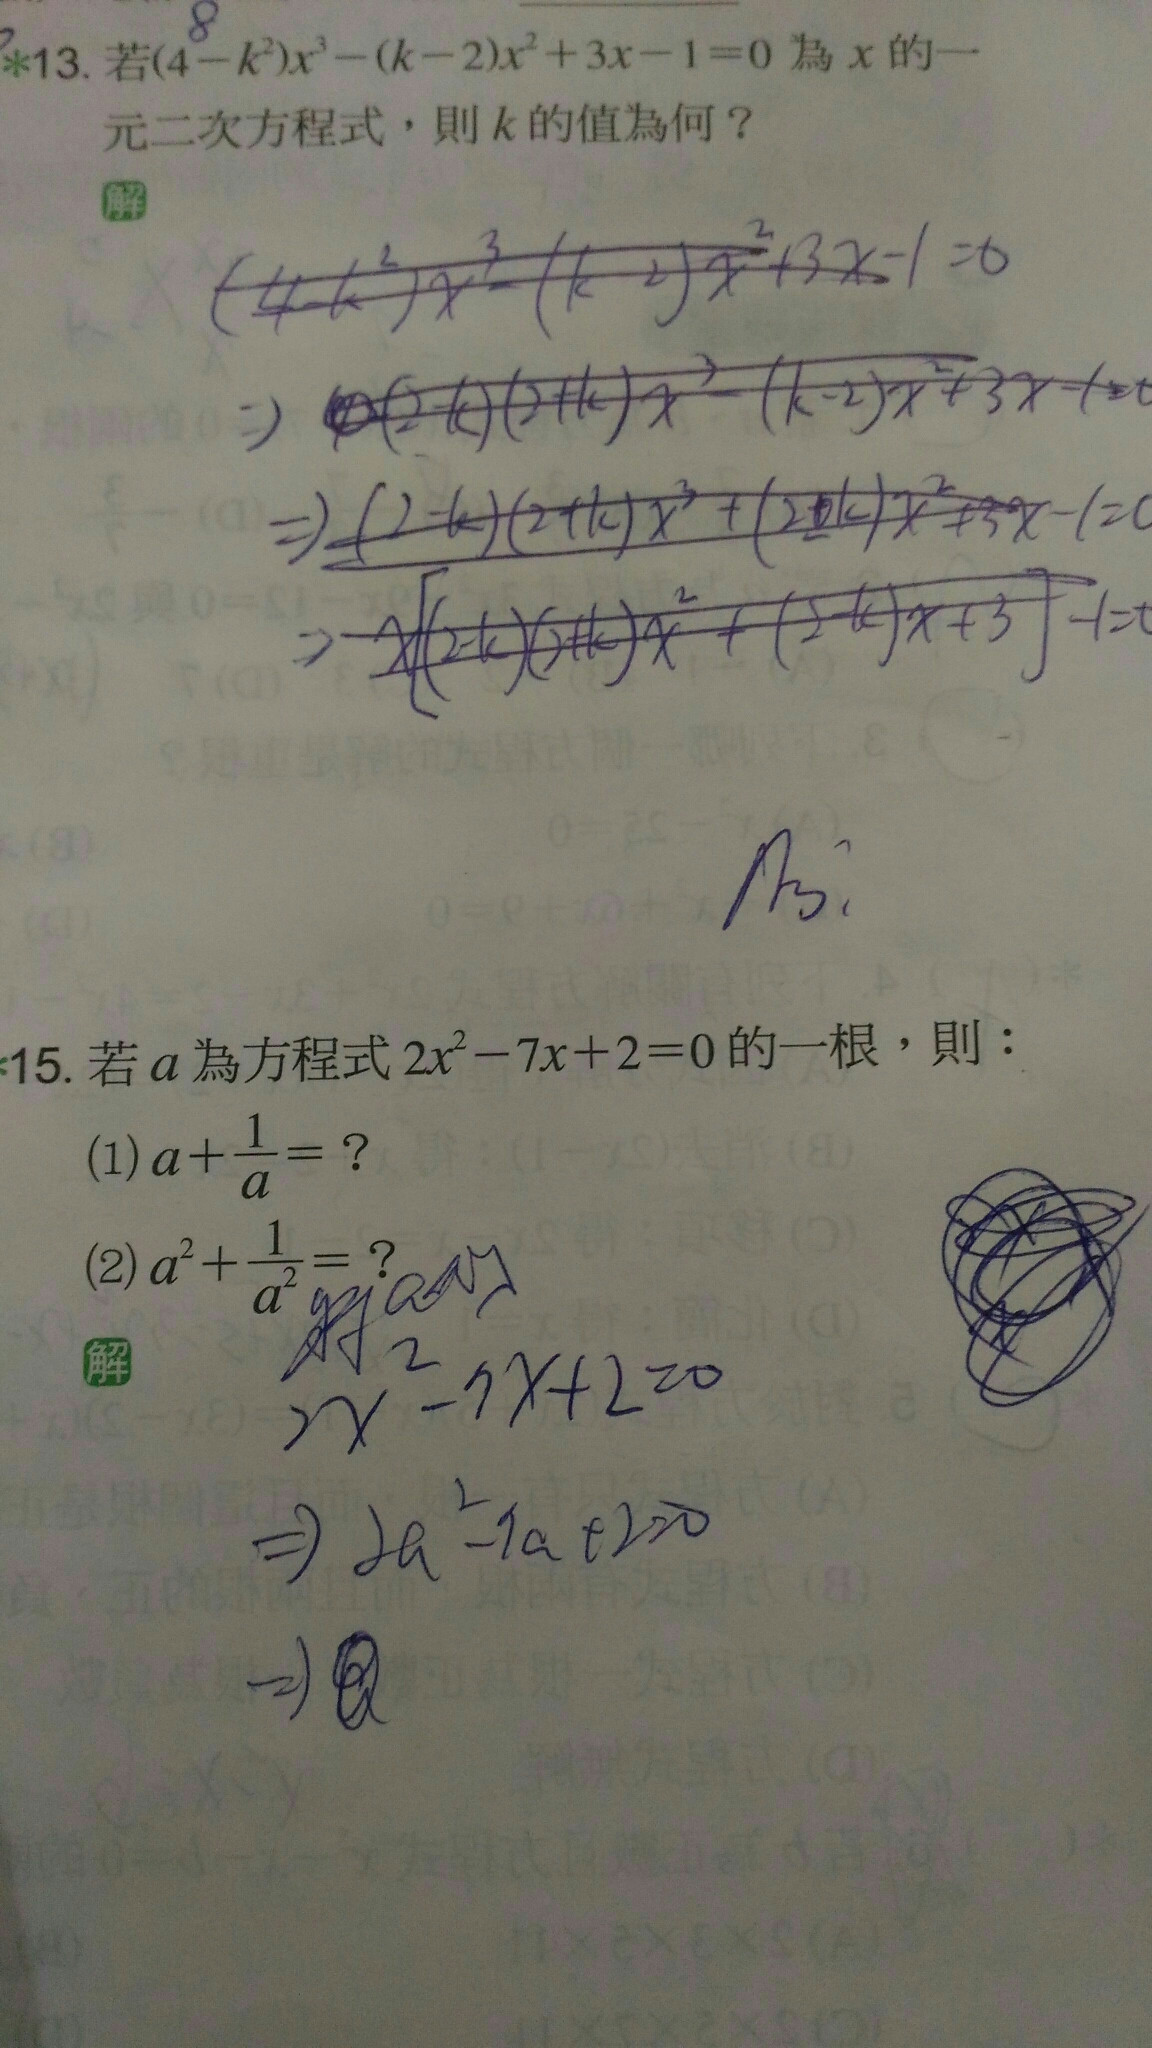 8
*13. 若(4-k²)x³-(k-2)x²+3x-1=0 為 x 的一
元二次方程式，則 k 的值為何？
解
(4-k²)x³-(k-2)x²+3x-1=0
⇒ (2-k)(2+k)x³-(k-2)x²+3x-1=0
⇒ (2-k)(2+k)x³+(2-k)x²+3x-1=0
⇒ x[(2-k)(2+k)x²+(2-k)x+3]-1=0
*15. 若 a 為方程式 2x²-7x+2=0 的一根，則：
(1) a+1/a=？
(2) a²+1/a²=？
解
2x²-7x+2=0
⇒ 2a²-7a+2=0
⇒